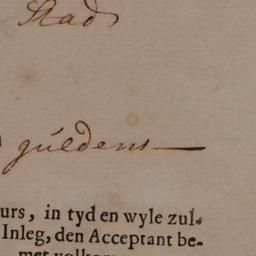 Stad
guldens
urs, in tyd en wyle zul-
Inleg, den Acceptant be-